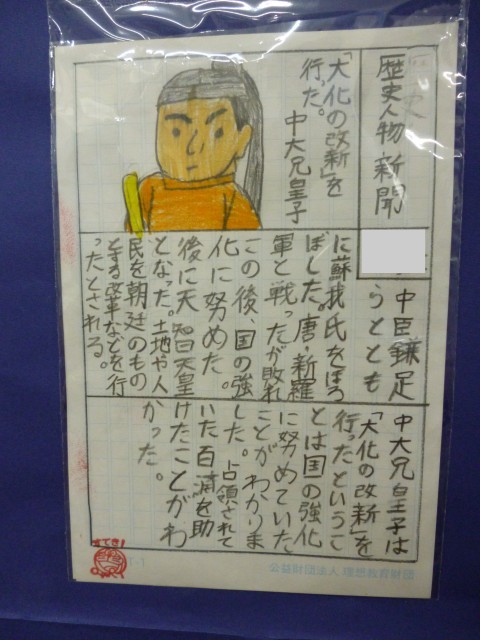 歴史人物新聞
「大化の改新」を
行った。
中大兄皇子
中臣鎌足
らととも
に蘇我氏をほろ
ぼした。唐・新羅
軍と戦ったが敗れ
この後、国の強
化に努めた。
後に天智天皇
となった。土地や人
民を朝廷のもの
とする改革などを行
ったとされる。
中大兄皇子は
「大化の改新」を
行ったというこ
とは国の強化
に努めていた
ことがわかりま
した。占領されて
いた百済を助
けたことがわ
かった。
公益財団法人 理想教育財団